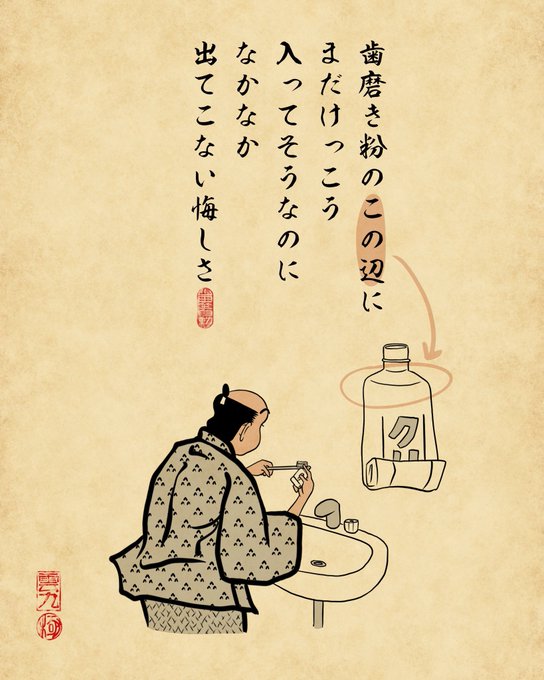 歯磨き粉のこの辺に
まだけっこう
入ってそうなのに
なかなか
出てこない悔しさ